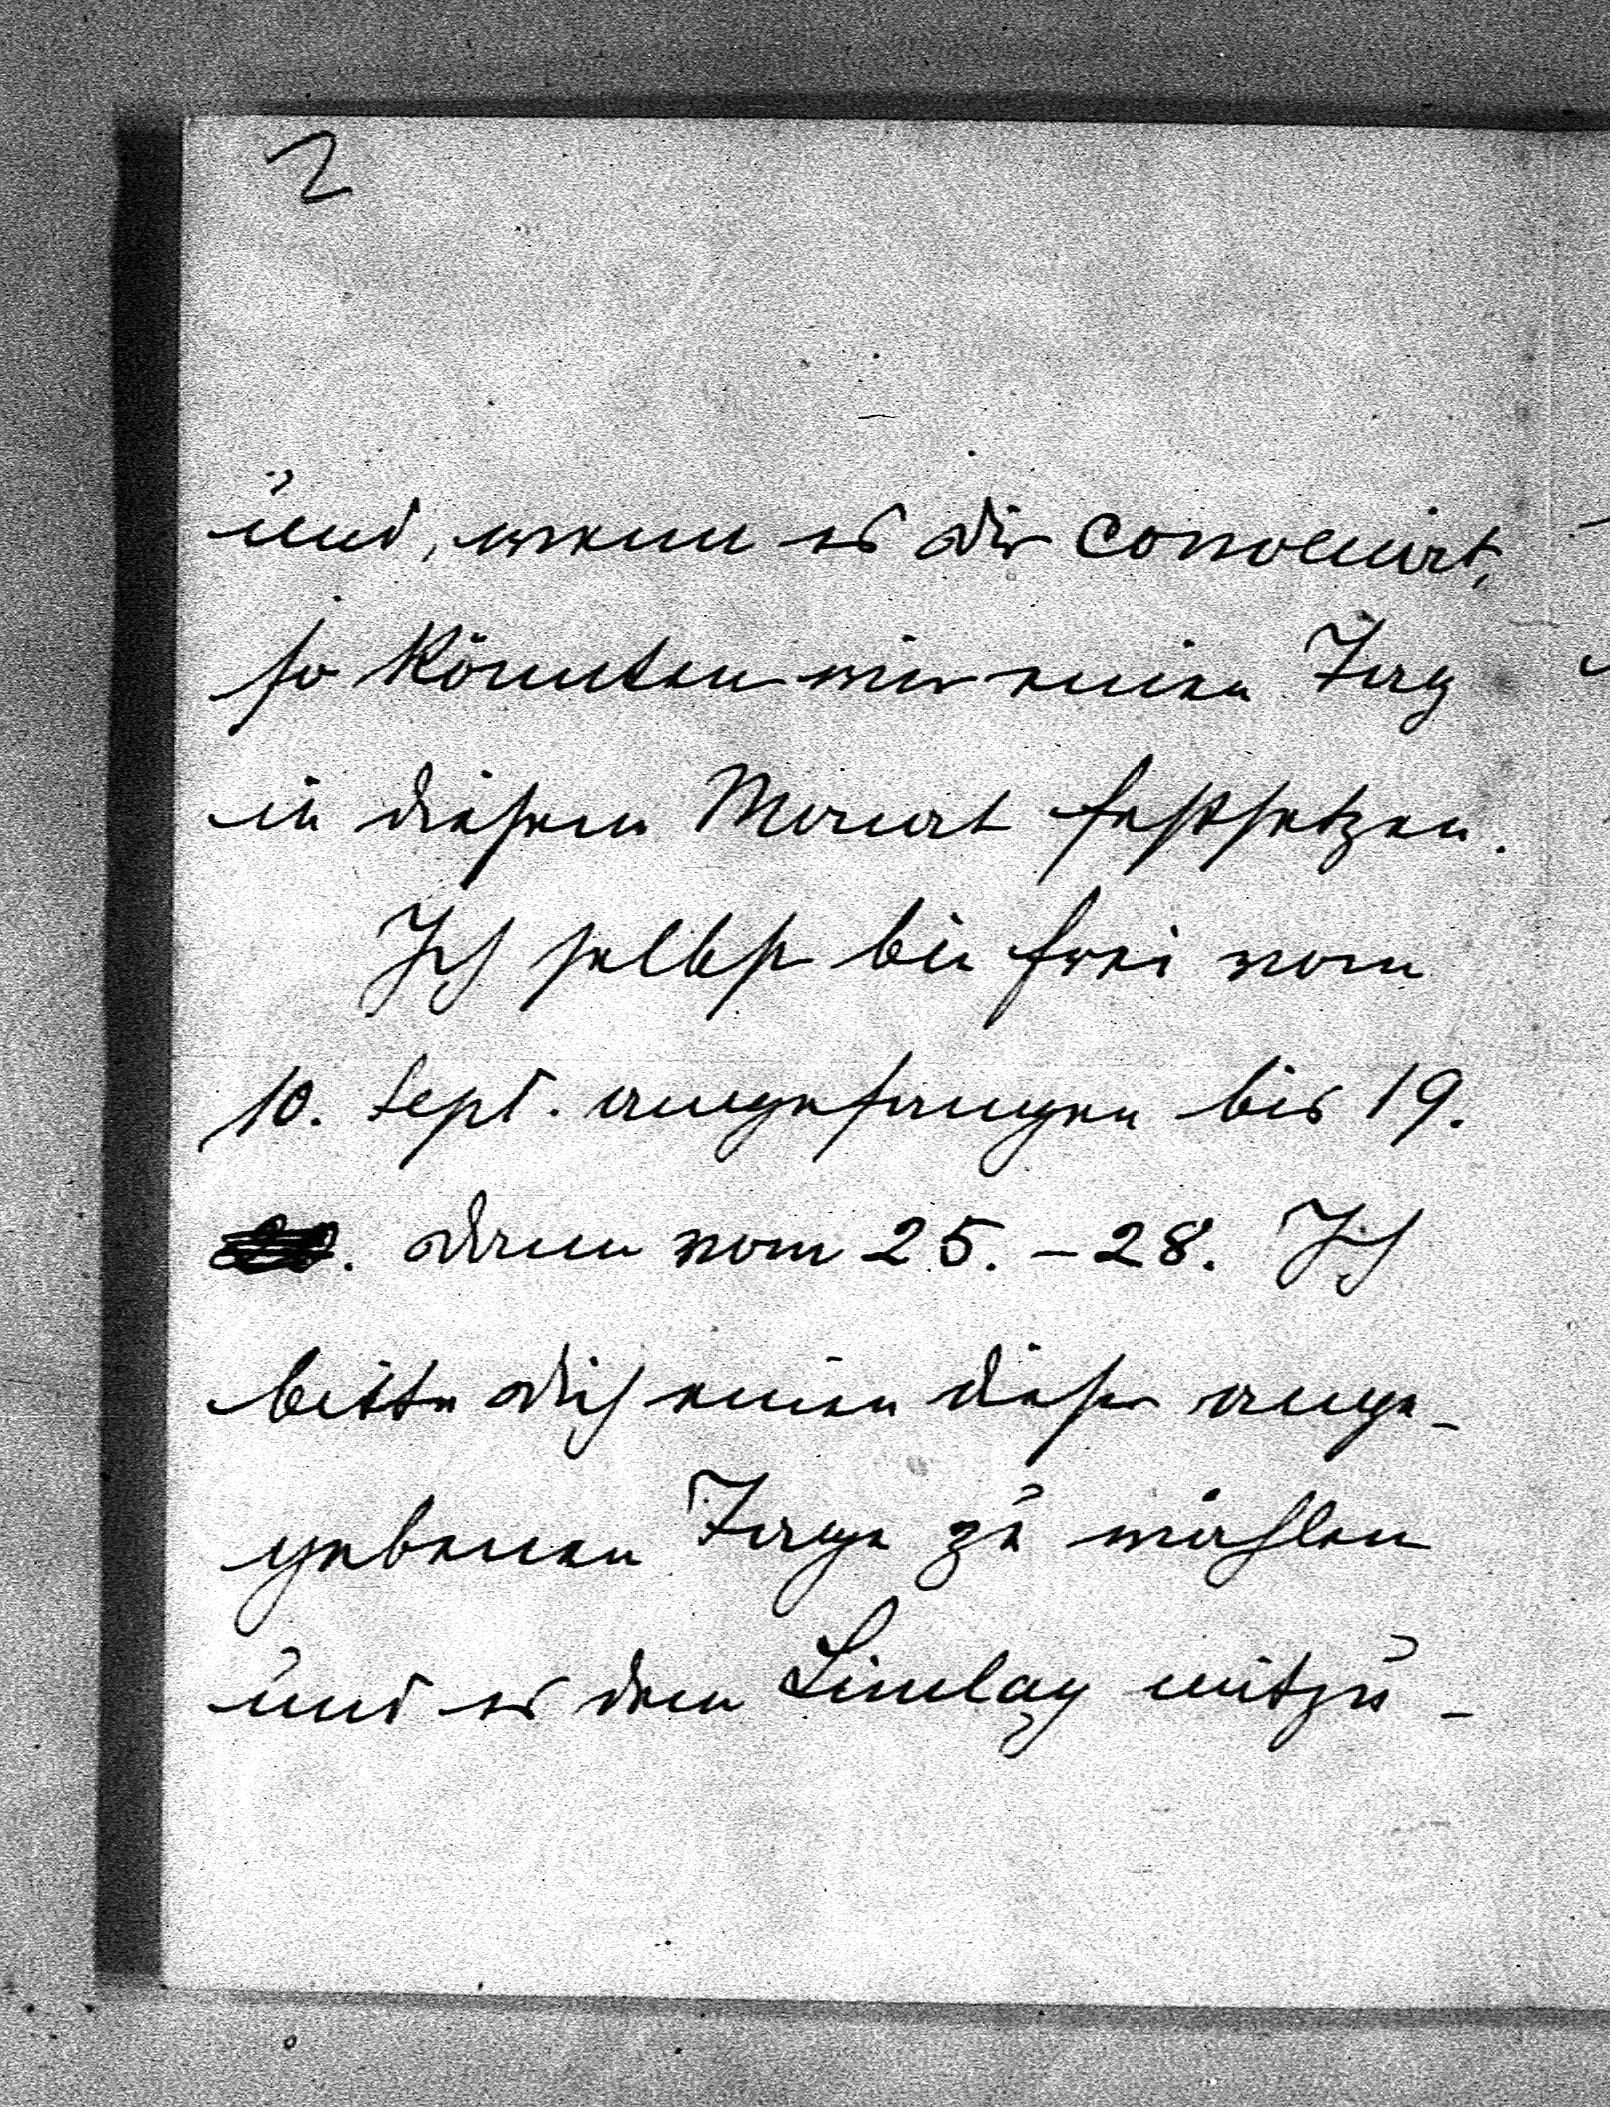 2
und, wenn es dir convenirt,
so könnten wir einen Tag
in diesem Monat festsetzen.
Ich selbst bin frei vom
10. Sept. angefangen bis 19.
dann vom 25. – 28. Ich
bitte dich einen dieser ange-
gebenen Tage zu wählen
und es dem mitzu-